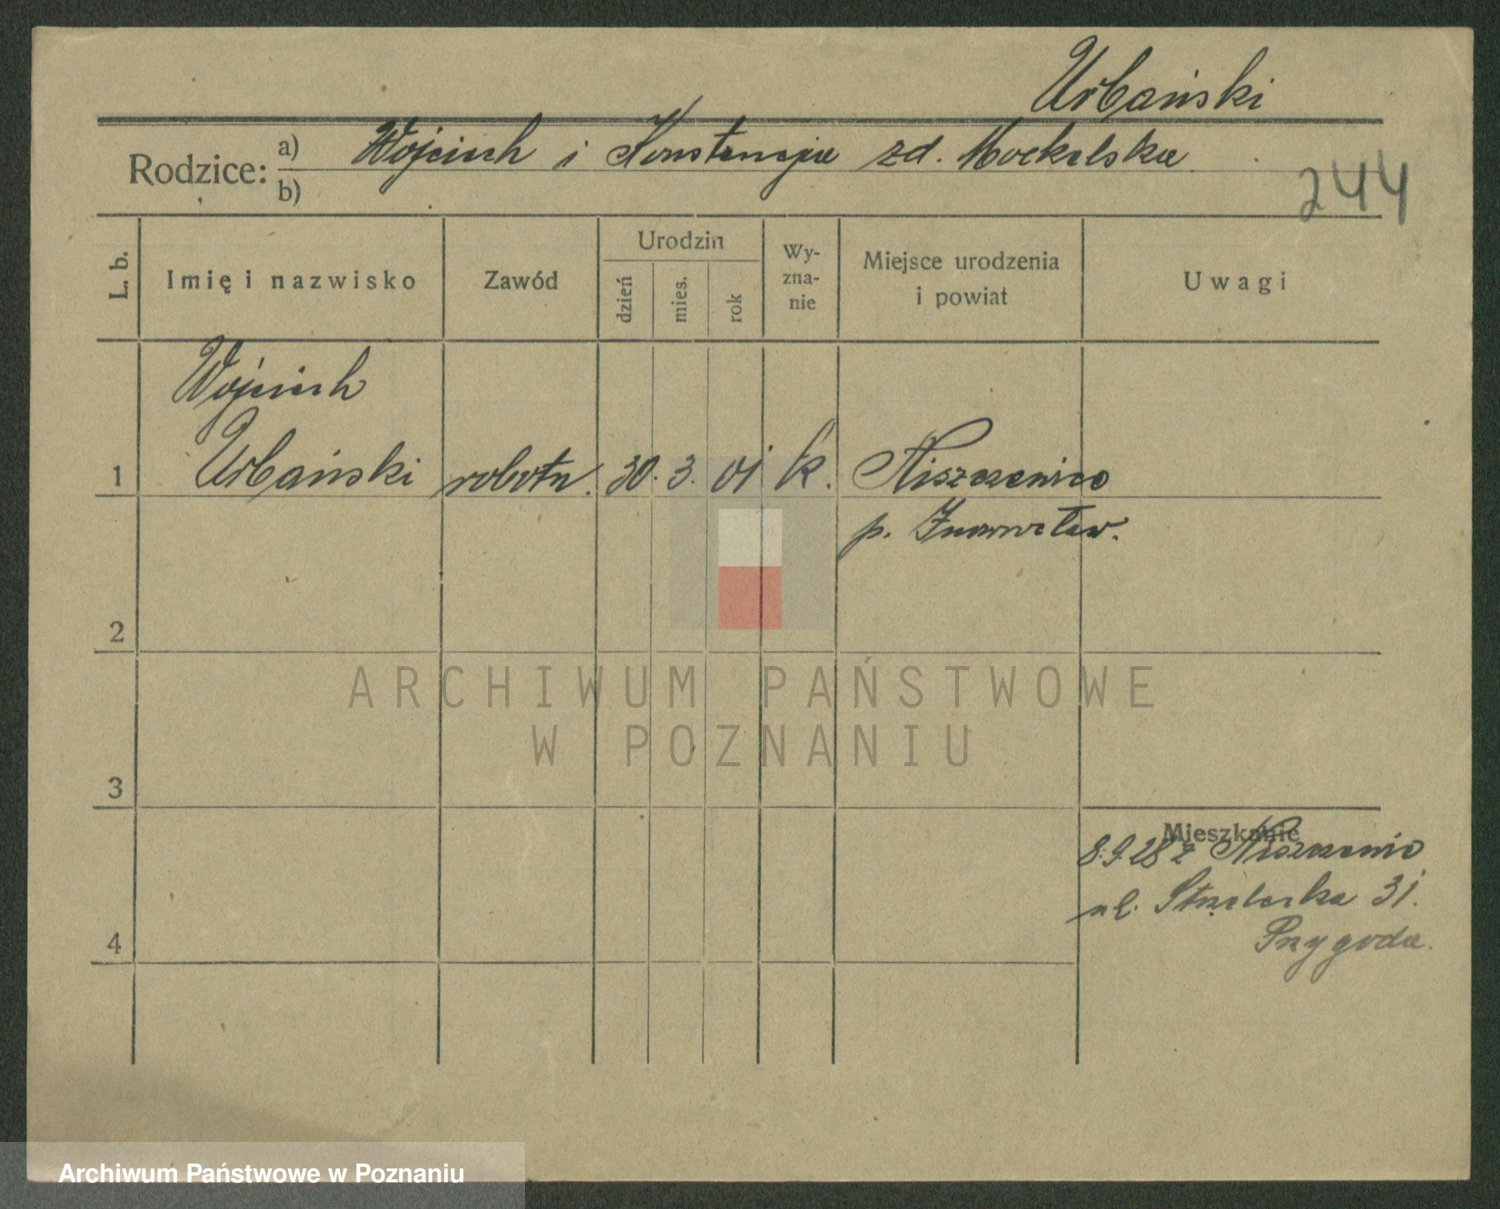 Urbański
Rodzice: a) Wojciech i Konstancja zd. Mockalska
b)
244
L. b.
Imię i nazwisko
Zawód
Urodzin
dzień
mies.
rok
Wy-
zna-
nie
Miejsce urodzenia
i powiat
Uwagi
Wojciech
1 Urbański robotn. 30. 3. 01 k. Niszczewice
p. Inowrocław.
2
ARCHIWUM PAŃSTWOWE
W POZNANIU
3
Mieszkanie
8.9.28 z
ul. Strzelecka 31.
Przygoda.
4
Archiwum Państwowe w Poznaniu